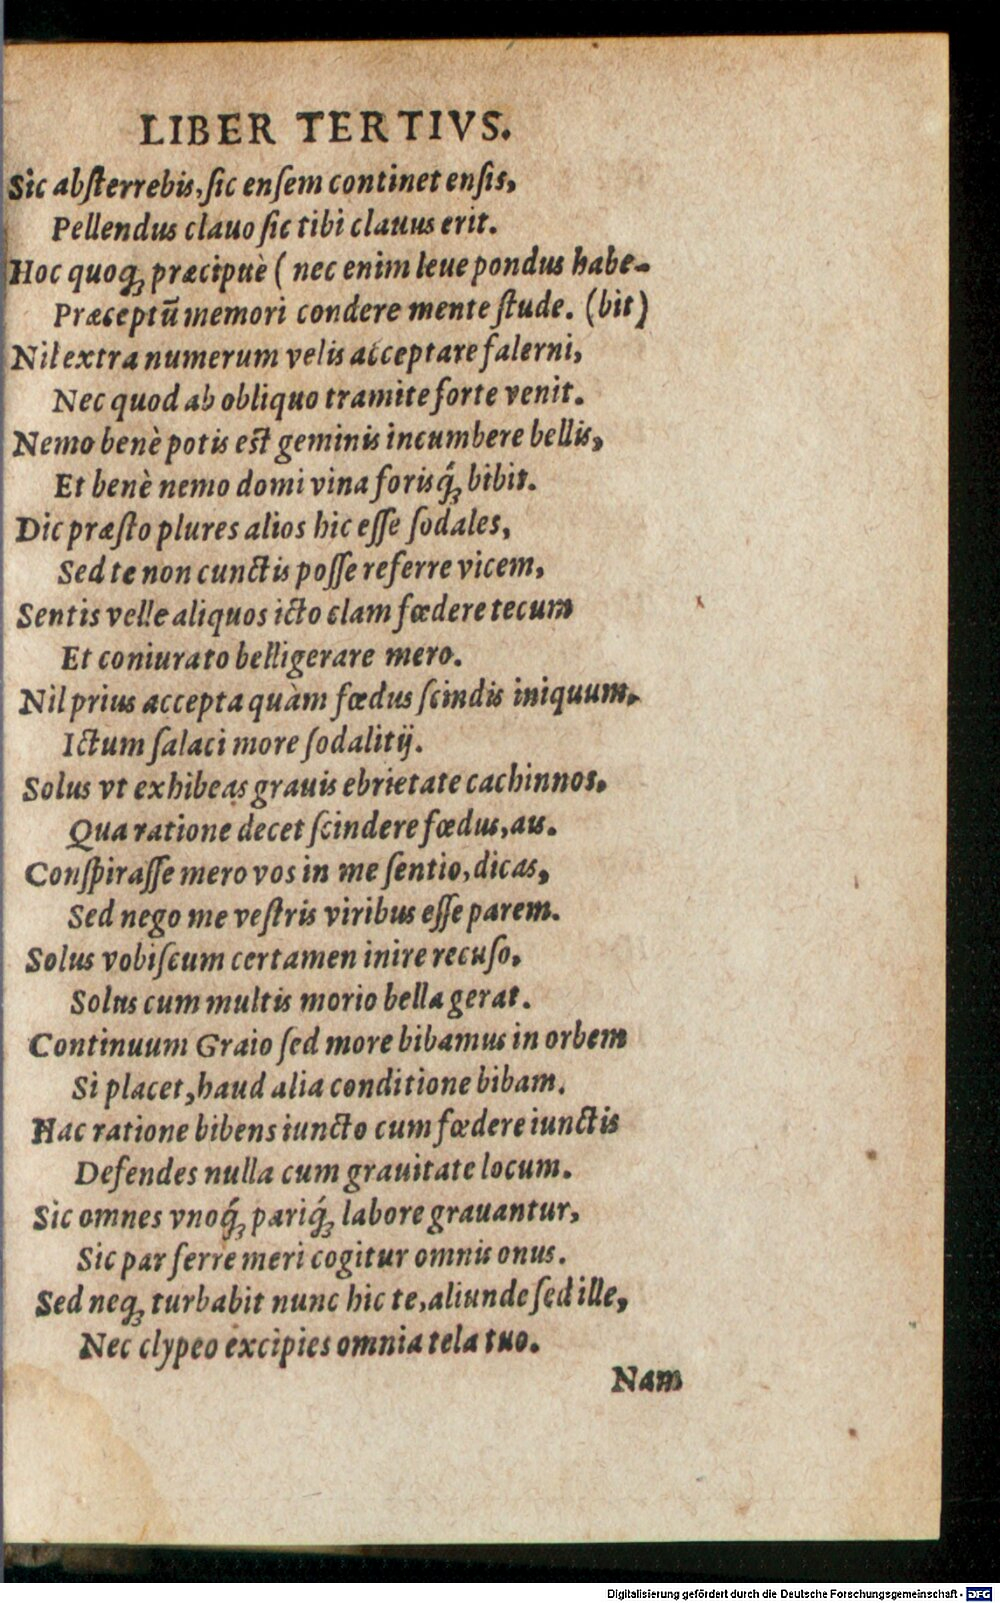 LIBER TERTIVS.
Sic absterrebis, sic ensem continet ensis,
Pellendus clauo sic tibi clauus erit.
Hoc quoqꝫ præcipuè ( nec enim leue pondus habe-
Præceptū memori condere mente stude. (bit)
Nil extra numerum velis acceptare falerni,
Nec quod ab obliquo tramite forte venit.
Nemo benè potis est geminis incumbere bellis,
Et benè nemo domi vina forisq́ꝫ bibit.
Dic præsto plures alios hic esse sodales,
Sed te non cunctis posse referre vicem,
Sentis velle aliquos icto clam fœdere tecum
Et coniurato belligerare mero.
Nil prius accepta quàm fœdus scindis iniquum,
Ictum salaci more sodalitij.
Solus vt exhibeas grauis ebrietate cachinnos,
Qua ratione decet scindere fœdus, ais.
Conspirasse mero vos in me sentio, dicas,
Sed nego me vestris viribus esse parem.
Solus vobiscum certamen inire recuso,
Solus cum multis morio bella gerat.
Continuum Graio sed more bibamus in orbem
Si placet, haud alia conditione bibam.
Hac ratione bibens iuncto cum fœdere iunctis
Defendes nulla cum grauitate locum.
Sic omnes vnoq́ꝫ pariq́ꝫ labore grauantur,
Sic par ferre meri cogitur omnis onus.
Sed neqꝫ turbabit nunc hic te, aliunde sed ille,
Nec clypeo excipies omnia tela tuo.
Nam
Digitalisierung gefördert durch die Deutsche Forschungsgemeinschaft - DFG